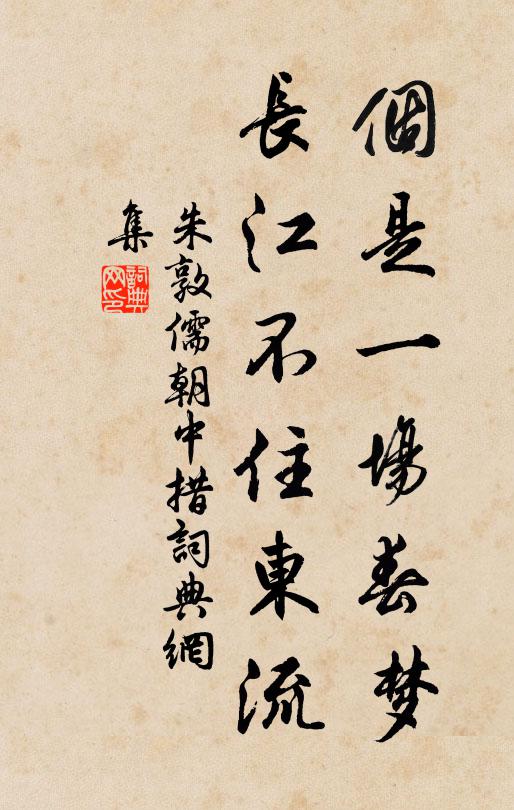 個是一場春梦
長江不住東流
朱敦儒朝中措詞典網
集
詞典
网印